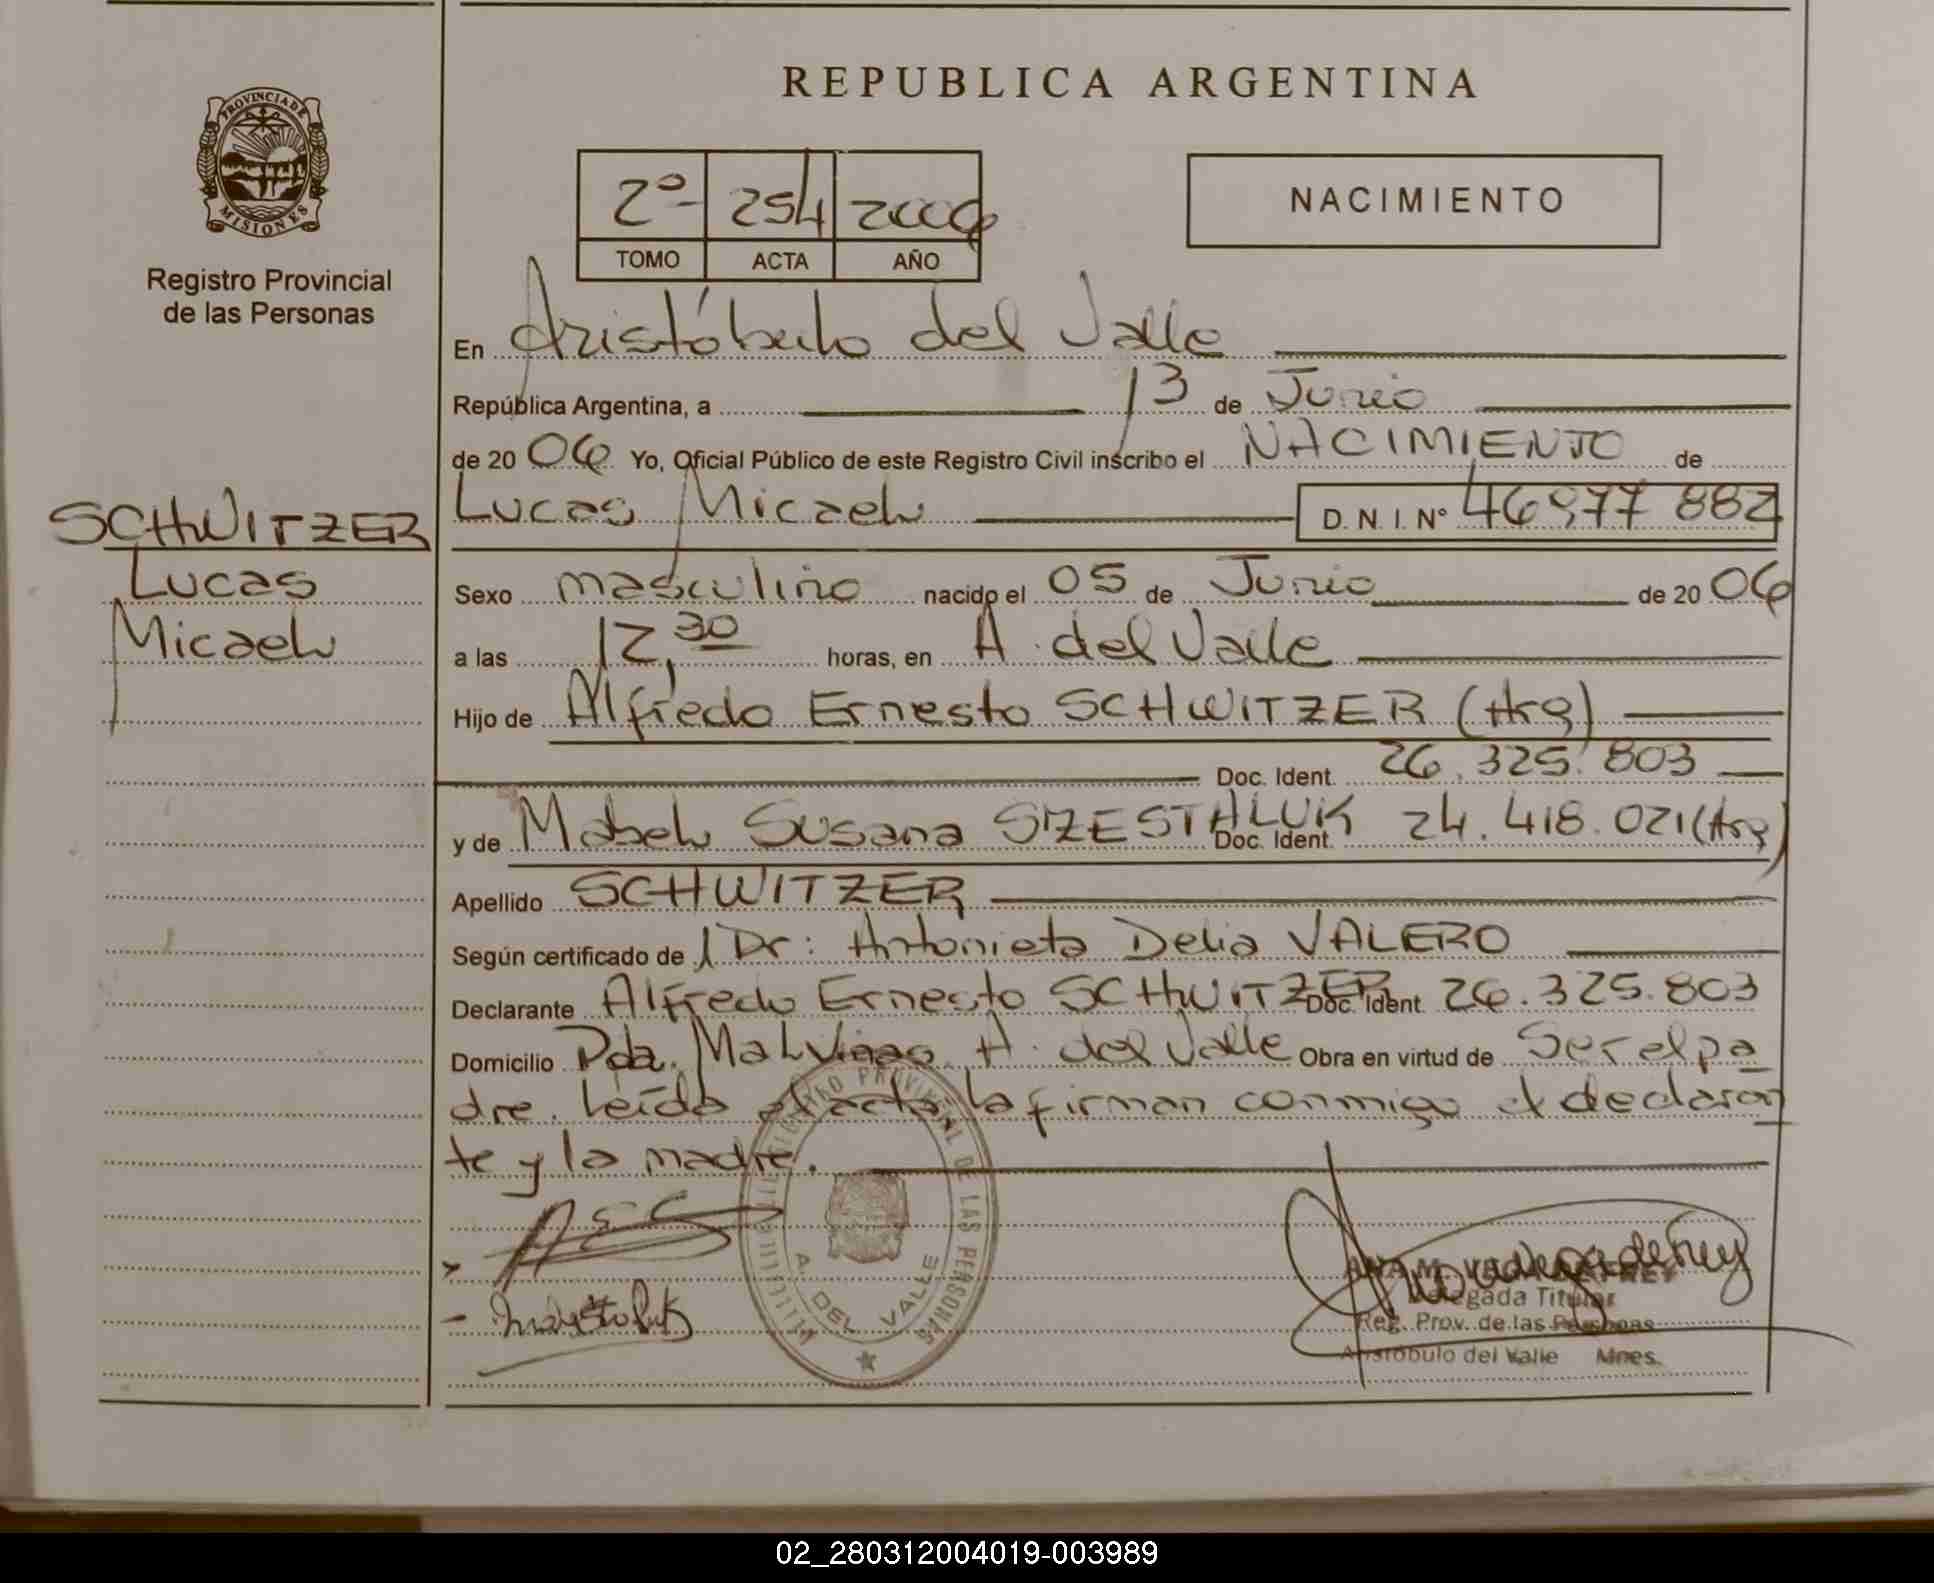 REPUBLICA ARGENTINA
PROVINCIA DE
MISIONES
Registro Provincial
de las Personas
2º 254 2006
TOMO ACTA AÑO
NACIMIENTO
En Aristóbulo del Valle
República Argentina, a 13 de Junio
de 20 06 Yo, Oficial Público de este Registro Civil inscribo el NACIMIENTO de
SCHWITZER
Lucas
Micael
Lucas Micael D. N. I. Nº 46977 882
Sexo masculino nacido el 05 de Junio de 20 06
a las 12,30 horas, en A. del Valle
Hijo de Alfredo Ernesto SCHWITZER (Arg)
Doc. Ident. 26.325.803
y de Mabel Susana SZESTALUK Doc. Ident. 24.418.021 (Arg)
Apellido SCHWITZER
Según certificado de l Dr: Antonieta Delia VALERO
Declarante Alfredo Ernesto SCHWITZER Doc. Ident. 26.325.803
Domicilio Pda. Malvinas. A. del Valle Obra en virtud de Ser el pa
dre. Leída el acta, la firman conmigo el declaran
te y la madre.
REGISTRO PROVINCIAL DE LAS PERSONAS
A. DEL VALLE
ANA M.
Delegada Titular
Reg. Prov. de las Personas
Aristóbulo del Valle Mnes.
02_280312004019-003989